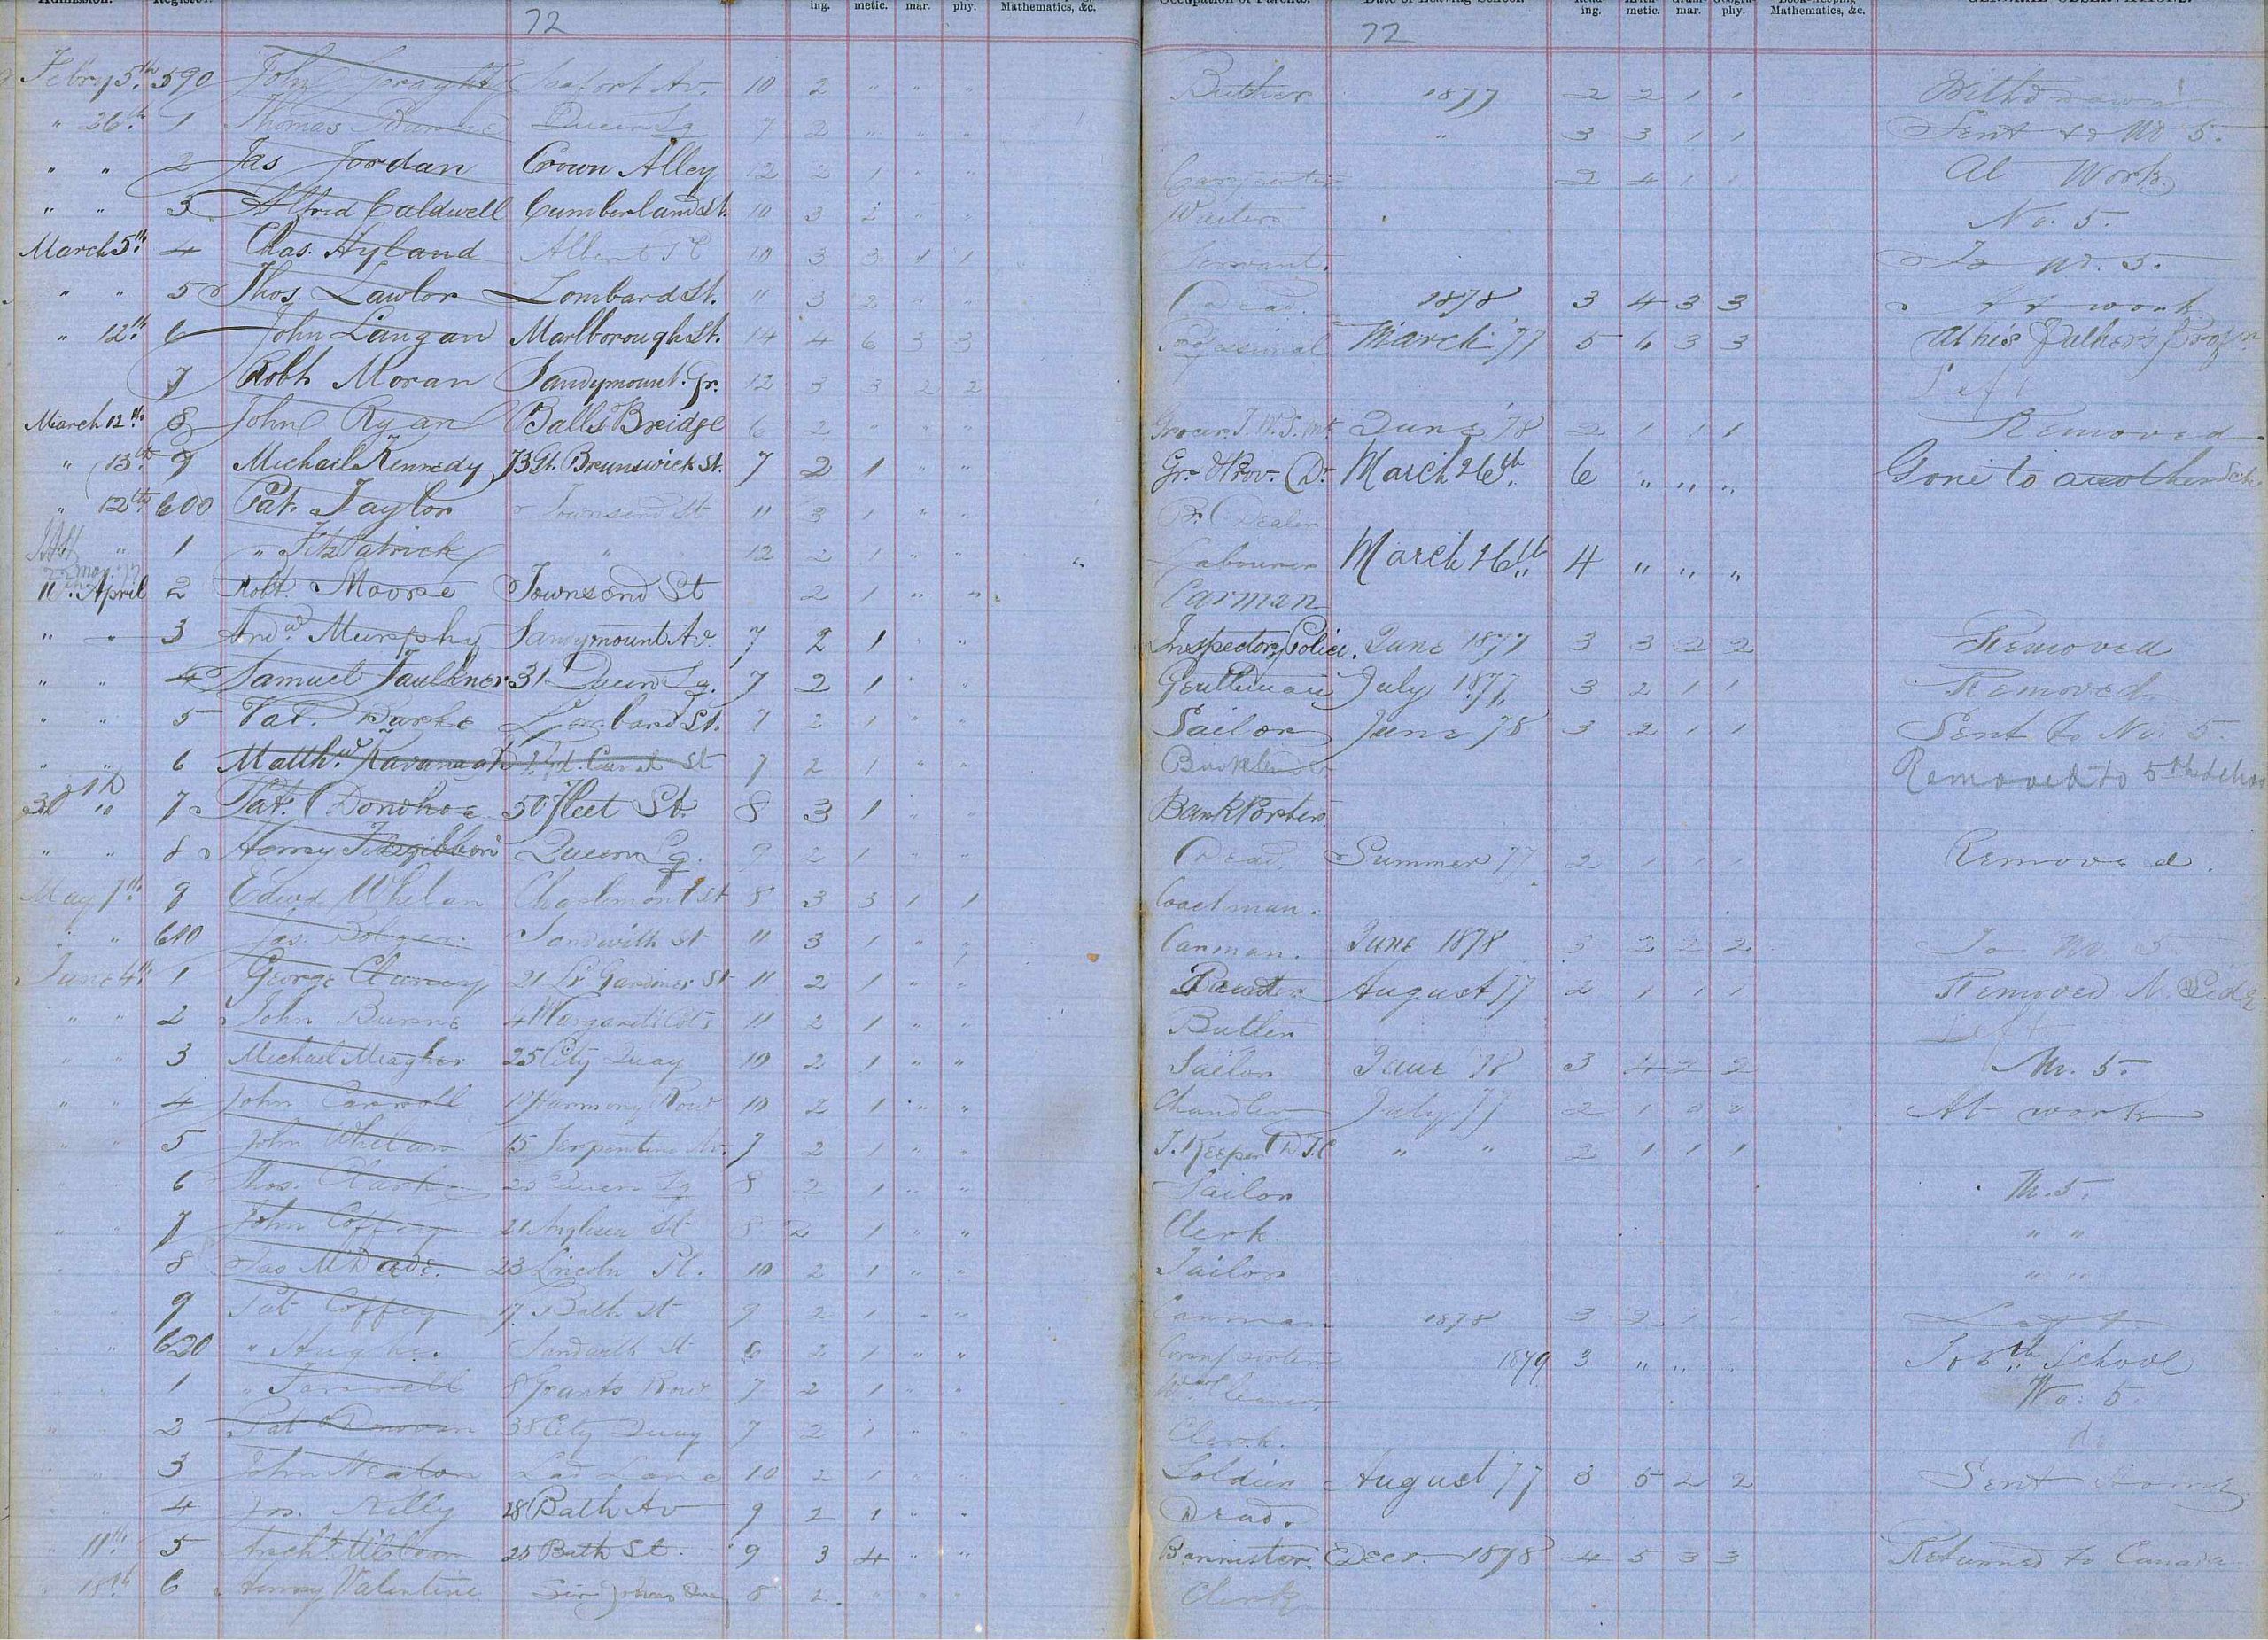 Admission. Register. ing. metic. mar. phy. Mathematics, &c. Occupation of Parents. Date of Leaving School. ing. metic. mar. phy. Mathematics, &c. GENERAL OBSERVATIONS.
72 72
Febry 5th 590 John Geraghty Av. 10 2 " " " Butcher 1877 2 2 1 1 Withdrawn
" 26th 1 Thomas Queen Sq 7 2 " " " " 3 3 1 1 Sent to No 5.
" " 2 Jas Jordan Crown Alley 12 2 1 " " Carpenter 2 4 1 1 At Work
" " 3 Alfred Caldwell Cumberland St. 10 3 2 " " Waiter No. 5.
March 5th 4 Chas. Hyland Albert Pl 10 3 3 1 1 Servant. To No. 5.
" " 5 Thos. Lawlor Lombard St. 11 3 2 " " Dead. 1878 3 4 3 3 work
" 12th 6 John Langan Marlborough St. 14 4 6 3 3 Professional March '77 5 6 3 3 At his Father's
7 Robt Moran Sandymount Gr. 12 3 3 2 2 Left
March 12th 8 John Ryan Balls Bridge 6 2 " " " Grocer. June '78 2 1 1 1 Removed
" 13th 9 Michael Kennedy 73 Gt. Brunswick St. 7 2 1 " " Gr. & Prov. Dr. March 26th 6 " " " Gone to another Sch
" 12th 600 Pat. Taylor Townsend St 11 3 1 " " Dealer
" 1 " Fitzpatrick " " 12 2 1 " " Labourer March 26th 4 " " "
22 May '77
11th April 2 Robt. Moore Townsend St 2 1 " " Carman
" " 3 Andw Murphy Sandymount Av. 7 2 1 " " Inspector Police. June 1877 3 3 2 2 Removed
" " 4 Samuel Faulkner 31 Queen Sq. 7 2 1 " " Gentleman July 1877. 3 2 1 1 Removed
" " 5 Pat. Burke Lombard St. 7 2 1 " " Sailor June 78 3 2 1 1 Sent to No. 5.
" " 6 Matthw Kavanagh St 7 2 1 " " Removed to 5th School
30th " 7 Pat. Donohoe 50 Fleet St. 8 3 1 " " Bank Porter
" " 8 Henry Fitzgibbon Queen Sq. 9 2 1 " " Dead. Summer 77 2 1 1 1 Removed.
May 7th 9 Edwd Whelan Charlemont St 8 3 3 1 1 Coachman.
" " 610 Jas. Bolger Sandwith St 11 3 1 " " Carman. June 1878 3 2 2 2 To No. 5
June 4th 1 George Clancy 21 Lr Gardiner St 11 2 1 " " Painter August 77 2 1 1 1 Removed N. Side
" " 2 John Burne 4 Margaret's Cots 11 2 1 " " Butler Left
" " 3 Michael Meagher 25 City Quay 10 2 1 " " Sailor June 78 3 4 2 2 No. 5.
" " 4 John Carroll 17 Harmony Row 10 2 1 " " Chandler July 77 2 1 0 0 At work
" " 5 John Whelan 15 Serpentine Av. 7 2 1 " " T. Keeper D.T.C " " 2 1 1 1
" " 6 Thos. Clarke 20 Queen Sq 8 2 1 " " Sailor No. 5.
" " 7 John Coffey 21 Anglesea St 8 2 1 " " Clerk. " "
" " 8 Jas McDade. 23 Lincoln Pl. 10 2 1 " " Tailor " "
" " 9 Pat Coffey 17 Bath St 9 2 1 " " Carman 1878 3 2 1 1 Left
" " 620 " Hughes. Sandwith St 6 2 1 " " 1879 3 " " " To 5th School
" " 1 " Farrell 8 Grants Row 7 2 1 " " No. 5.
" " 2 Pat Donovan 38 City Quay 7 2 1 " " Clerk. do
" " 3 John Nealon Lad Lane 10 2 1 " " Soldier August 77 3 5 2 2 Sent home
" " 4 Jos. Kelly 28 Bath Av 9 2 1 " " Dead.
" 11th 5 25 Bath St. 9 3 4 " " Barrister. Decr. 1878 4 5 3 3 Returned to Canada
" 18th 6 Henry Valentine Sir Johns 8 2 " " " Clerk